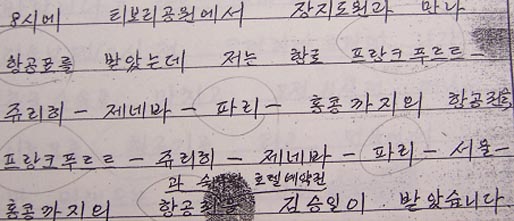 8시에 티보리공원에서 장지도원과 만나
항공표를 받았는데 저는 항로 프랑크푸르트-
쮸리히 - 제네바 - 파리 - 홍콩까지의
프랑크푸르트 - 쮸리히 - 제네바 - 파리 - 서울 -
과 호텔예약권
홍콩까지의 김승일이 받았습니다.